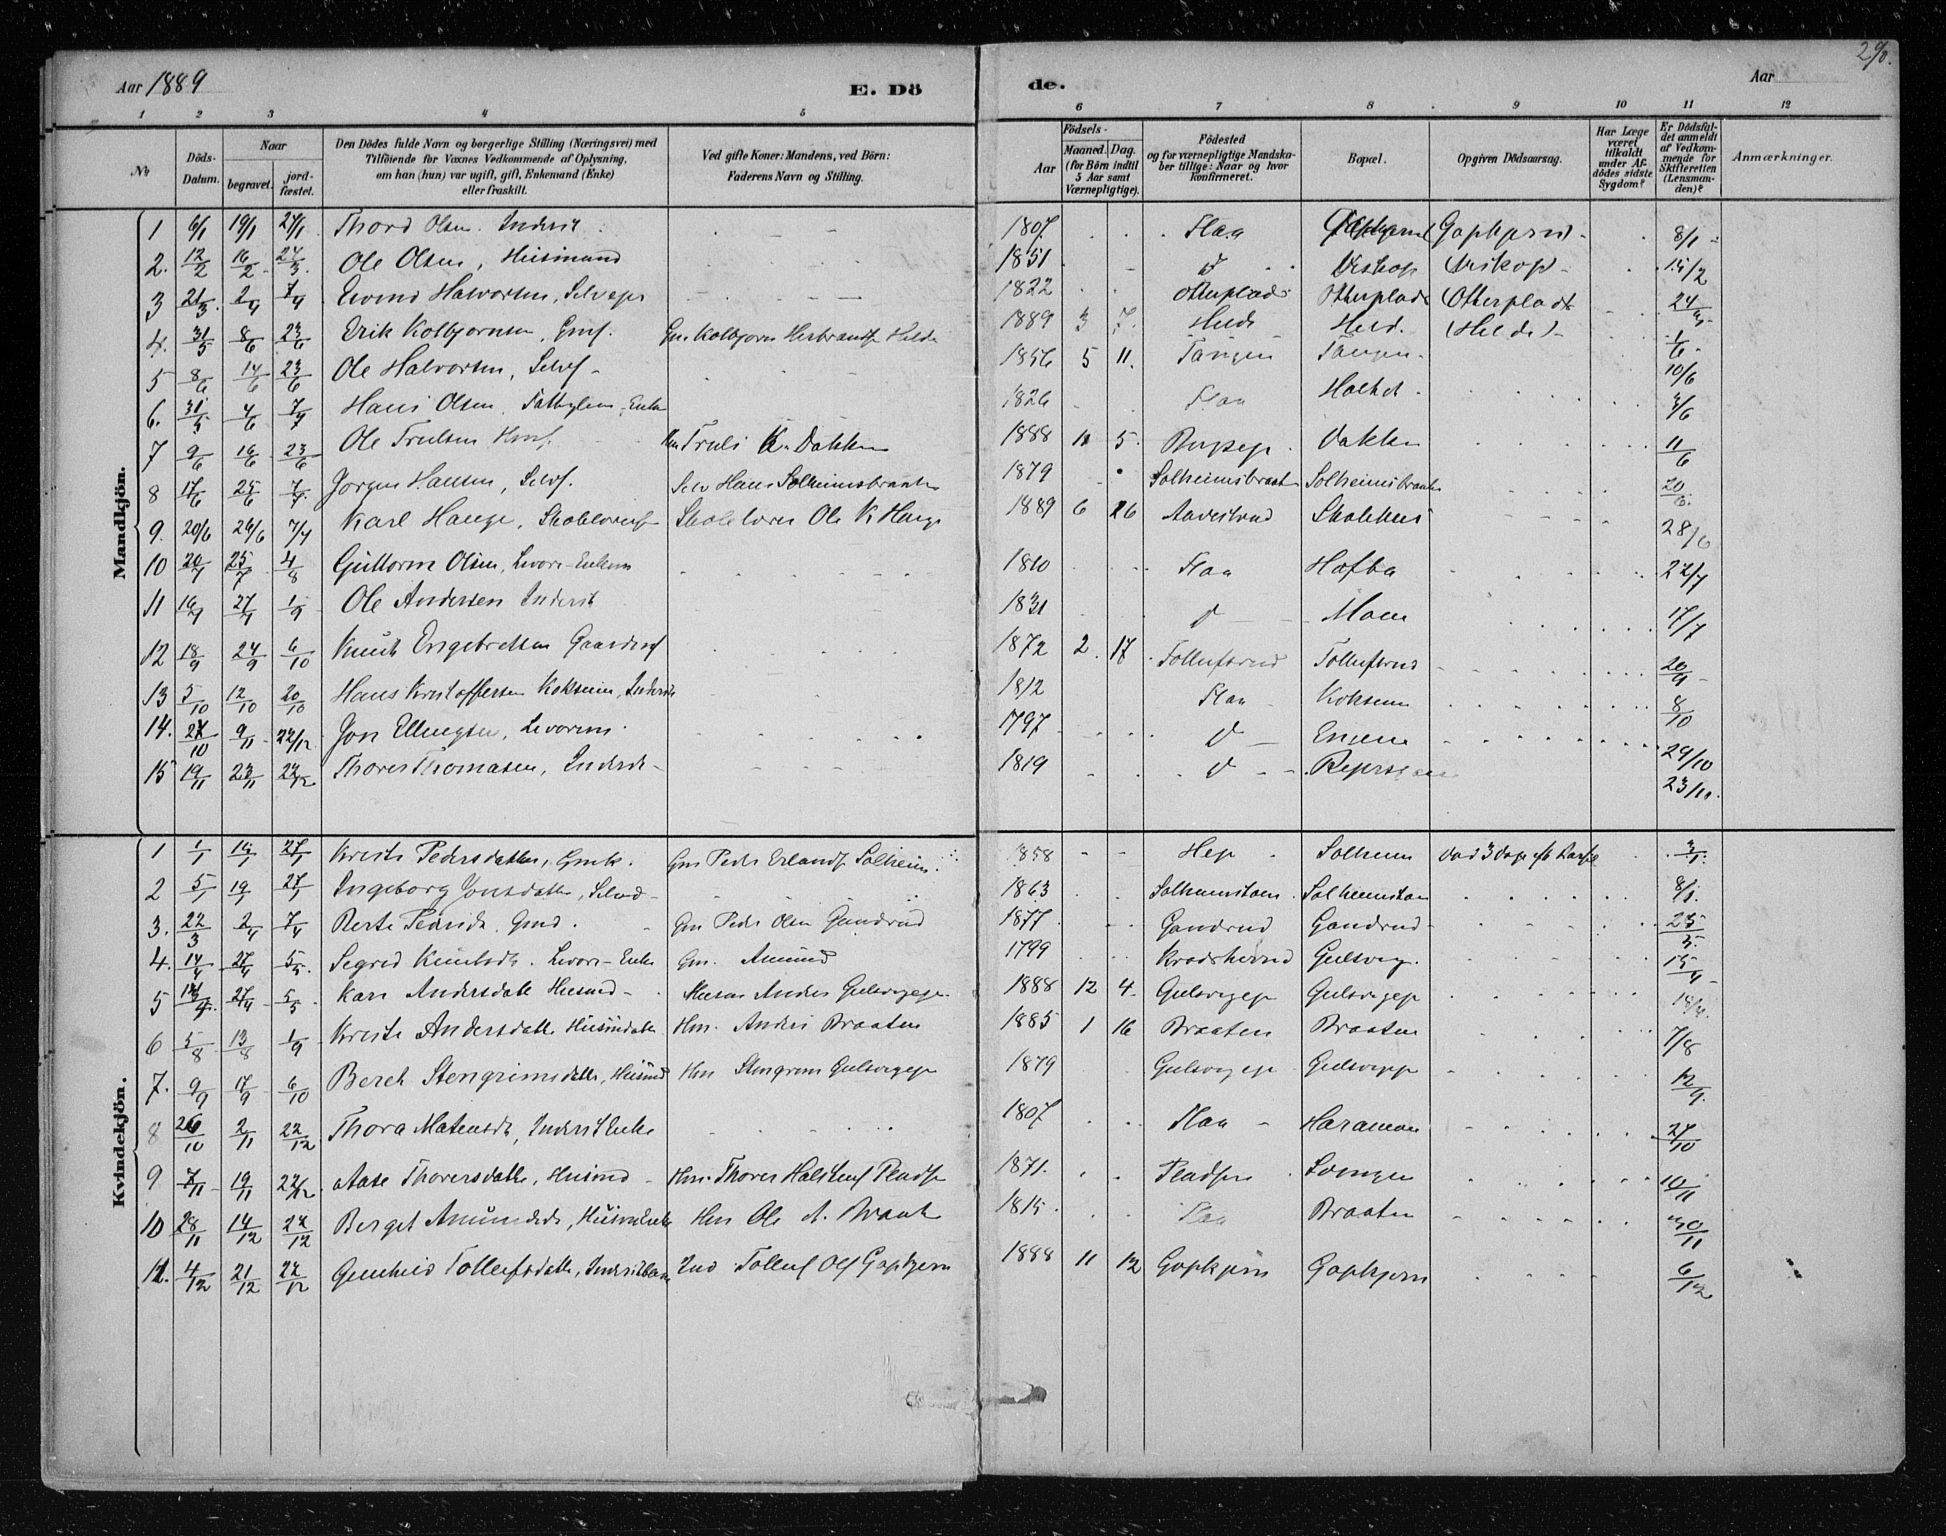 Aar 1889
E. Dö
de.
Aar
290.
1 2 3 4 5 6 7 8 9 10 11 12
No
Döds-Datum.
Naar
begravet.
jord-fæstet.
Den Dödes fulde Navn og borgerlige Stilling (Næringsvei) med
Tilföiende for Voxnes Vedkommende af Oplysning,
om han (hun) var ugift, gift, Enkemand (Enke)
eller fraskilt.
Ved gifte Koner: Mandens, ved Börn:
Faderens Navn og Stilling.
Födsels-
Aar
Maaned. Dag.
(for Börn indtil
5 Aar samt
Værnepligtige).
Födested
og for værnepligtige Mandska-
ber tillige: Naar og hvor
konfirmeret.
Bopæl.
Opgiven Dödsaarsag.
Har Læge
været
tilkaldt
under Af-
dödes sidste
Sygdom?
Er Dödsfal-
det anmeldt
af Vedkom-
mende for
Skifteretten
(Lensman-
den)?
Anmærkninger.
Mandkjön.
1 6/1 19/1 27/1 Thord Olsen. Inderst 1807. Flaa Gapkjern 8/1
2. 12/2 16/2 24/3 Ole Olsen, Husmand 1851 d 15/2
3 21/3 2/4 7/4 Eivind Halvorsen, 1822 Otterplads Otterplads (Otterplads 24/3
4. 31/5 8/6 23/6 Erik Kolbjørnsen, Gmf. Gm Kolbjørn Herbrands Helde 1889 3 7. Helde Held. (Helde) 1/6
5 8/6 14/6 23/6 Ole Halvorsen, 1856 5 11. Tangen Tangen 10/6
6. 31/5 4/6 7/7 Hans Olsen, Enke 1826 Flaa 3/6
7 9/6 16/6 23/6 Ole Trulsen Hmf. Truls K. Dokken 1888 11 5. Dokken 11/6
8 17/6 25/6 7/7. Jørgen Hansen, Selvf. Selv Hans Solheimsbraaten 1879 Solheimsbraat Solheimsbraaten 20/6
9. 20/6 26/6 7/7 Karl Hauge, Skolelærers Skolelærer Ole K Hauge 1889 6 26 Aavestrud Skolehus 28/6
10 20/7 25/7 4/8 Guttorm Olsen, 1810 Flaa Hofba 22/7
11 16/7 27/7 1/9 Ole Andersen Inderst 1831 d Moen 17/7
12 18/9 24/9 6/10 Knut Engebretsen Gaardms 1872 2 17 Tollefsrud Tollefsrud 20/9
13 5/10 12/10 20/10 Hans Kristoffersen Koksum, Inderst 1812 Flaa Koksum 8/10
14. 27/10 9/11 22/12 Jon Ellingsen, 1797 d Engene 29/10
15 19/11 23/11 22/12 Thores Thomasen, Inderst 1819 d 23/11.
Kvindekjön.
1 1/1 19/1 27/1 Kristi Pedersdatter, Gmk. Gm Peder Erlands Solheim. 1858 Heje Solheim 3/1.
2 5/1 19/1 27/1 Ingeborg Jonsdatter, 1863 Solheimstoen Solheimstoen 8/1.
3. 22/3 2/4 7/4 Berte Pedersd. Gmd. Gm Peder Olsen Gandrud 1877 Gandrud Gandrud 25/3
4. 14/4 27/4 5/5. Sigrid Knutsdt. Gm. Amund 1799 Gulsvig. 15/4
5 27/4 5/5 Kari Andersdatter Husmd Husm Anders Gulsvigeje 1888 12 4. Gulsvigeje Gulsvigeje 18/4.
6 5/8 13/8 1/9 Kristi Andersdatter Husmdatter Hm. Anders Braaten 1885 1 16 Braaten Braaten 7/8
7. 9/9 17/9 6/10 Bereth Stengrimsdatter, Husmd Hm Stengrim Gulsvigeje 1879 Gulsvigeje Gulsvigeje 12/9.
8 26/10 2/11 22/12 Thora Matensdt, Inderst Enke 1807 Flaa Haramoen 27/10
9 7/11 19/11 22/12 Aase Thoresdatter, Husmd Hm. Thores Halstens Pladsen 1871. Pladsen 10/11
10 28/11 14/12 22/12 Berget Amundsdt, Husm Enke Hm Ole A. Braaten 1815. Flaa Braaten 30/11
11. 4/12 21/12 22/12 Gunhild Tollefsdatter, Ind Tollef Ols Gapkjern 1888 11 12 Gapkjern Gapkjern 6/12